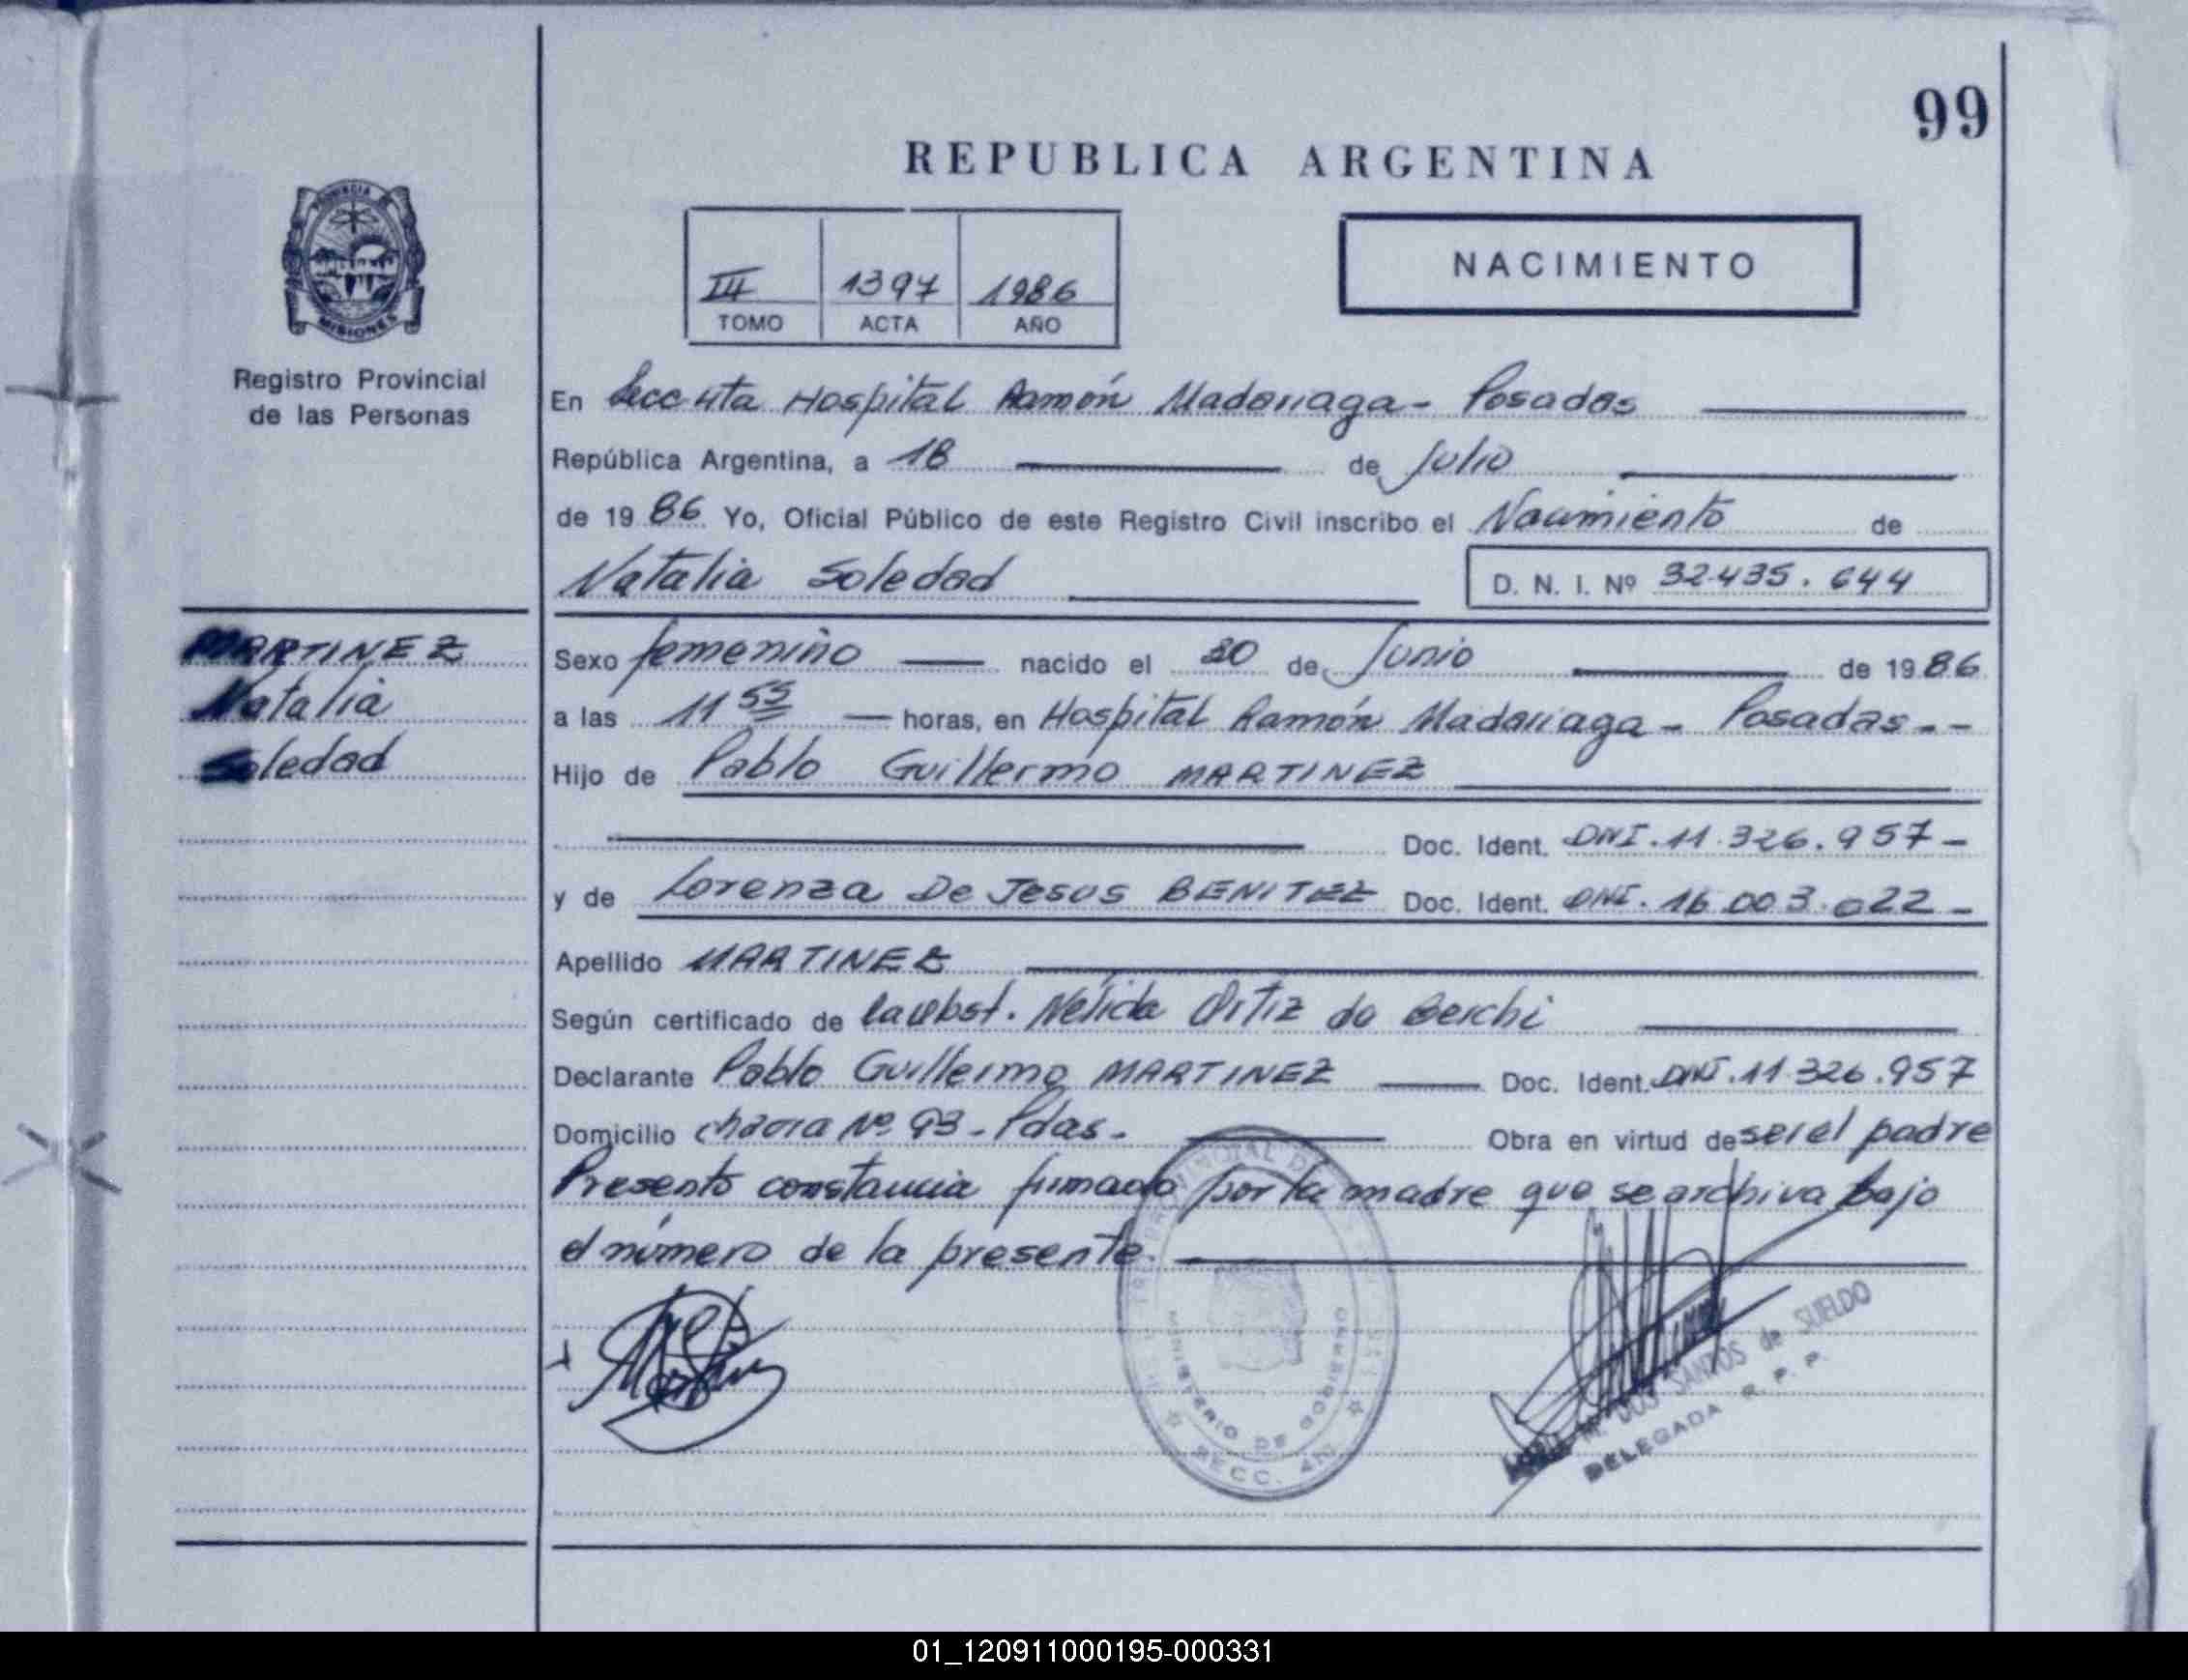 99
REPUBLICA ARGENTINA
PROVINCIA
MISIONES
Registro Provincial
de las Personas
III 1397 1986
TOMO ACTA AÑO
NACIMIENTO
En Secc 4ta Hospital Ramón Madariaga - Posadas
República Argentina, a 18 de Julio
de 1986. Yo, Oficial Público de este Registro Civil inscribo el Nacimiento de
Natalia Soledad D. N. I. Nº 32.435.644
MARTINEZ
Natalia
Soledad
Sexo femenino nacido el de Junio de 1986
a las 11 55 horas, en Hospital Ramón Madariaga - Posadas - -
Hijo de Pablo Guillermo MARTINEZ
Doc. Ident. DNI. 11.326.957 -
y de Lorenza De Jesus BENITEZ Doc. Ident. DNI. 16.003.022 -
Apellido MARTINEZ
Según certificado de la obst. Nelida Ortiz de
Declarante Pablo Guillermo MARTINEZ Doc. Ident. DNI. 11.326.957
Domicilio chacra Nº 93 - Pdas - Obra en virtud de ser el padre
Presento constancia firmada por la madre que se archiva bajo
el número de la presente.
MINISTERIO DE GOBIERNO
SECC. 4ta
M. DOS SANTOS de SUELDO
DELEGADA R. P. P.
01_120911000195-000331